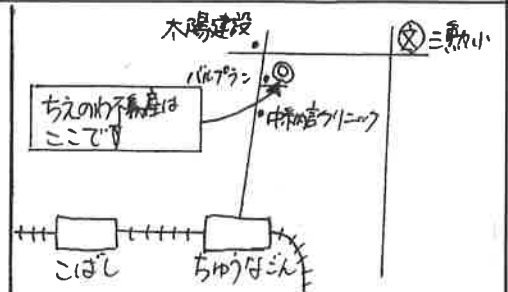 太陽建設
三勲小
文
バルプラン
ちえのわ不動産は
ここです
中納言クリニック
こばし
ちゅうなごん